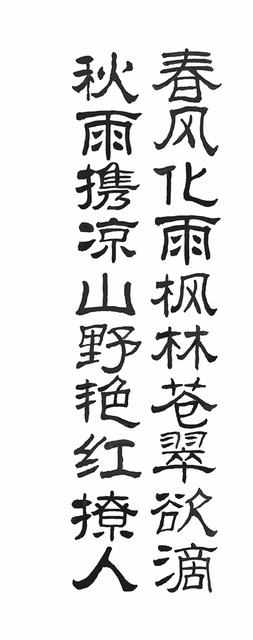 春风化雨枫林苍翠欲滴
秋雨携凉山野艳红撩人